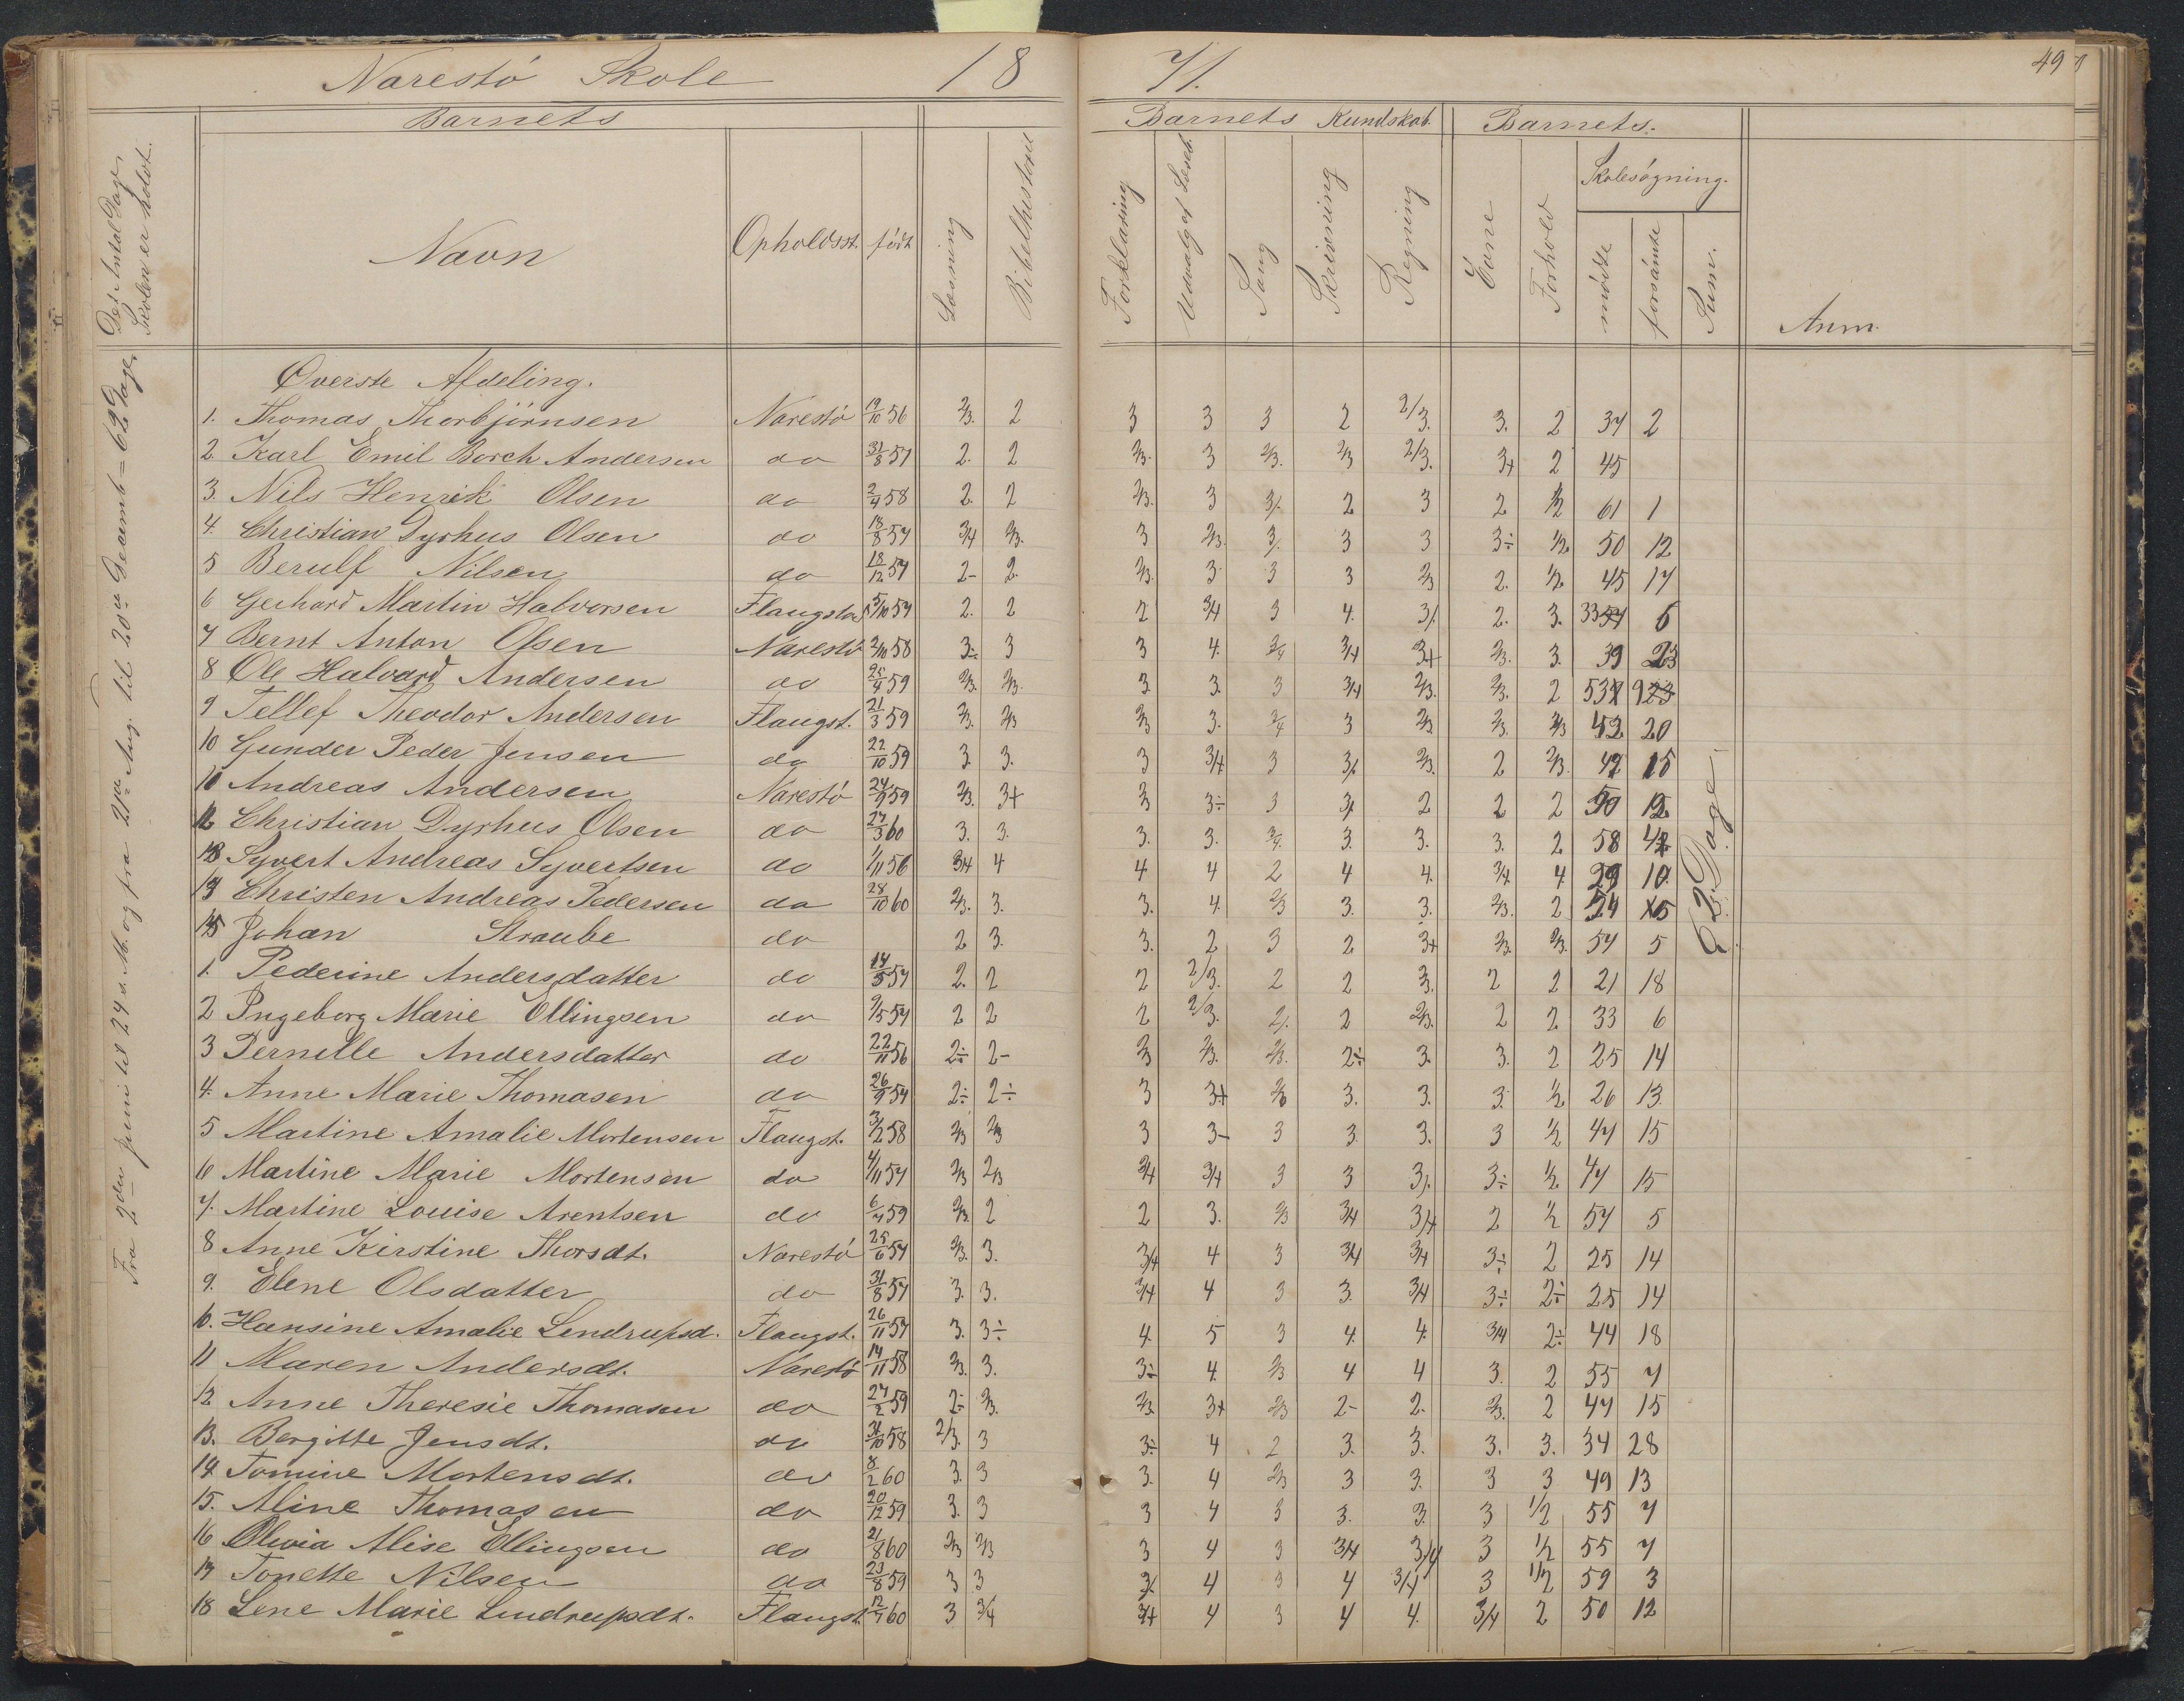 Narestö Skole 18 71. 49
Barnets Barnets Kundskab. Barnets.
Det Antal Dage Skolen er holdt.
Navn Opholdsst. født Læsning Bibelhistorie Forklaring Udvalg af Læseb. Sang Skrivning Regning Evne Forhold Skolesøgning. mødte forsømte Sum. Anm.
Fra 2den Juni til 24 s. M. og fra 21de Aug. til 20de Decemb = 62 Dage.
Øverste Afdeling.
1. Thomas Thorbjörnsen Narestö 19/10 56 2/3. 2 3 3 3 2 2/3. 3. 2 37 2
2. Karl Emil Borch Andersen do 31/8 57 2. 2 2/3. 3 2/3. 2/3 2/3. 3+ 2 45
3. Nils Henrik Olsen do 2/4 58 2. 2 2/3. 3 3/. 2 3 2 1/2 61 1
4. Christian Dyrhus Olsen do 18/8 57 3/4 2/3. 3 2/3. 3/. 3 3 3÷ 1/2 50 12
5 Berulf Nilsen do 18/12 57 2- 2. 2/3. 3 3 3 2/3 2. 1/2 45 17
6 Gerhard Martin Halvorsen Flaugstad 5/10 57 2. 2 2 3/4 3 4. 3/. 2. 3. 33 6
7 Bernt Anton Olsen Narestö 2/10 58 3÷ 3 3 4. 3/4 3/4 3+ 2/3. 3. 39 23
8 Ole Halvard Andersen do 25/4 59 2/3. 2/3. 3 3. 3 3/4 2/3. 2/3. 2 53 9
9 Tellef Theodor Andersen Flaugst. 21/3 59 2/3. 2/3 2/3 3. 3/4 3 2/3 2/3. 2/3 42 20
10 Gunder Peder Jensen do 22/10 59 3. 3. 3 3/4 3 3/. 2/3. 2 2/3. 47 15
11 Andreas Andersen Narestö 24/9 59 2/3. 3+ 2/3 3÷ 3 3/. 2 2 2 50 12
12 Christian Dyrhus Olsen do 27/3 60 3. 3. 3. 3. 3/4. 3. 3. 3. 2 58 4
13 Syvert Andreas Syvertsen do 1/11 56 3/4 4 4 4 2 4 4. 3/4 4 29 10
14 Christen Andreas Pedersen do 28/10 60 2/3. 3. 3. 4. 2/3 3. 3. 2/3. 2 54 5
15 Johan Straube do 2 3. 3. 2 3 2 3+ 2/3. 2/3. 57 5
62 Dage.
1. Pederine Andersdatter do 14/5 57 2. 2 2 2/3. 2 2 3. 2 2 21 18
2 Ingeborg Marie Ellingsen do 9/5 57 2 2 2 2/3. 2/. 2 2/3. 2 2 33 6
3 Pernille Andersdatter do 22/11 56 2÷ 2- 2/3 2/3. 2/3. 2÷ 3. 3. 2 25 14
4. Anne Marie Thomasen do 26/9 57 2÷ 2÷ 3 3+ 2/3 3. 3. 3. 1/2 26 13
5 Martine Amalie Mortensen Flaugst. 3/2 58 2/3 2/3 3 3- 3 3. 3. 3 1/2 47 15
6 Martine Marie Mortensen do 4/11 57 2/3 2/3 3/4 3/4 3 3 3/. 3÷ 1/2 47 15
7. Martine Louise Arentsen do 6/4 59 2/3. 2 2 3. 2/3 3/4 3/4 2 1/2 57 5
8 Anne Kirstine Thorsdt. Narestö 25/6 57 2/3. 3. 3/4 4 3 3/4 3/4 3÷ 2 25 14
9. Elene Olsdatter do 31/8 57 3. 3. 3/4 4 3 3. 3/4 3÷ 2÷ 25 14
10. Hansine Amalie Lendrupsd. Flaugst. 26/11 57 3. 3÷ 4. 5 3 4. 4. 3/4 2÷ 44 18
11 Maren Andersdt. Narestö 14/11 58 2/3. 3. 3÷ 4. 2/3 4 4 3. 2 55 7
12 Anne Theresie Thomasen do 27/2 59 2÷ 2/3. 2/3. 3+ 2/3 2- 2. 2/3. 2 47 15
13. Bergitte Jensdt. do 31/10 58 2/3. 3 3÷ 4 2 3. 3. 3. 3. 34 28
14 Tomine Mortensdt. do 8/2 60 3. 3 3. 4 2/3 3 3. 3 3 49 13
15. Aline Thomasen do 20/12 59 3. 3 3 4 3 3. 3. 3 1/2 55 7
16 Olivia Alise Ellingsen do 21/8 60 2/3 2/3 3 4 3 3/4 3/4 3 1/2 55 7
17 Tonette Nilsen do 23/8 59 3 3 3/. 4 3 4 3/4 3 1/2 59 3
18 Lene Marie Lindrupsdt. Flaugst. 12/7 60 3 3/4 3/4 4 3 4 4. 3/4 2 50 12